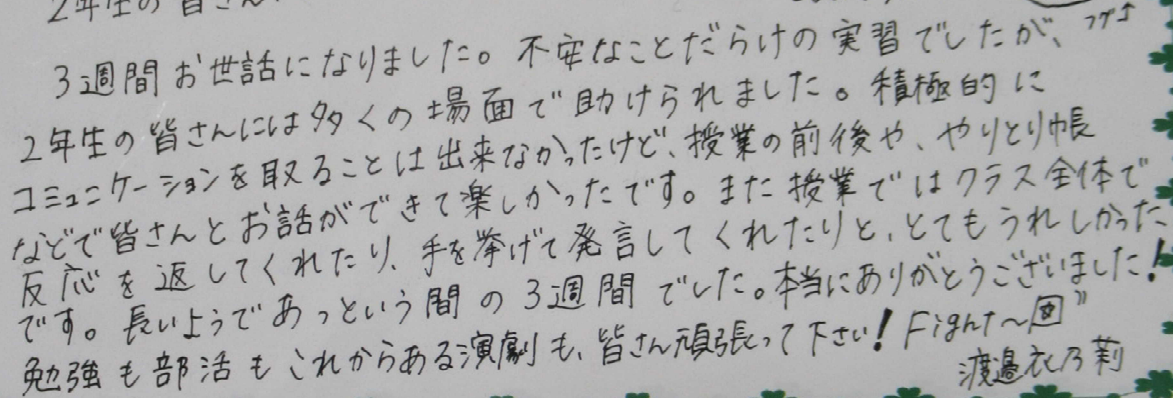 2年生の皆さん
3週間お世話になりました。不安なことだらけの実習でしたが、
2年生の皆さんには多くの場面で助けられました。積極的に
コミュニケーションを取ることは出来なかったけど、授業の前後や、やりとり帳
などで皆さんとお話ができて楽しかったです。また授業ではクラス全体で
反応を返してくれたり、手を挙げて発言してくれたりと、とてもうれしかった
です。長いようであっという間の3週間でした。本当にありがとうございました!
勉強も部活もこれからある演劇も、皆さん頑張って下さい! Fight〜
渡邉衣乃莉